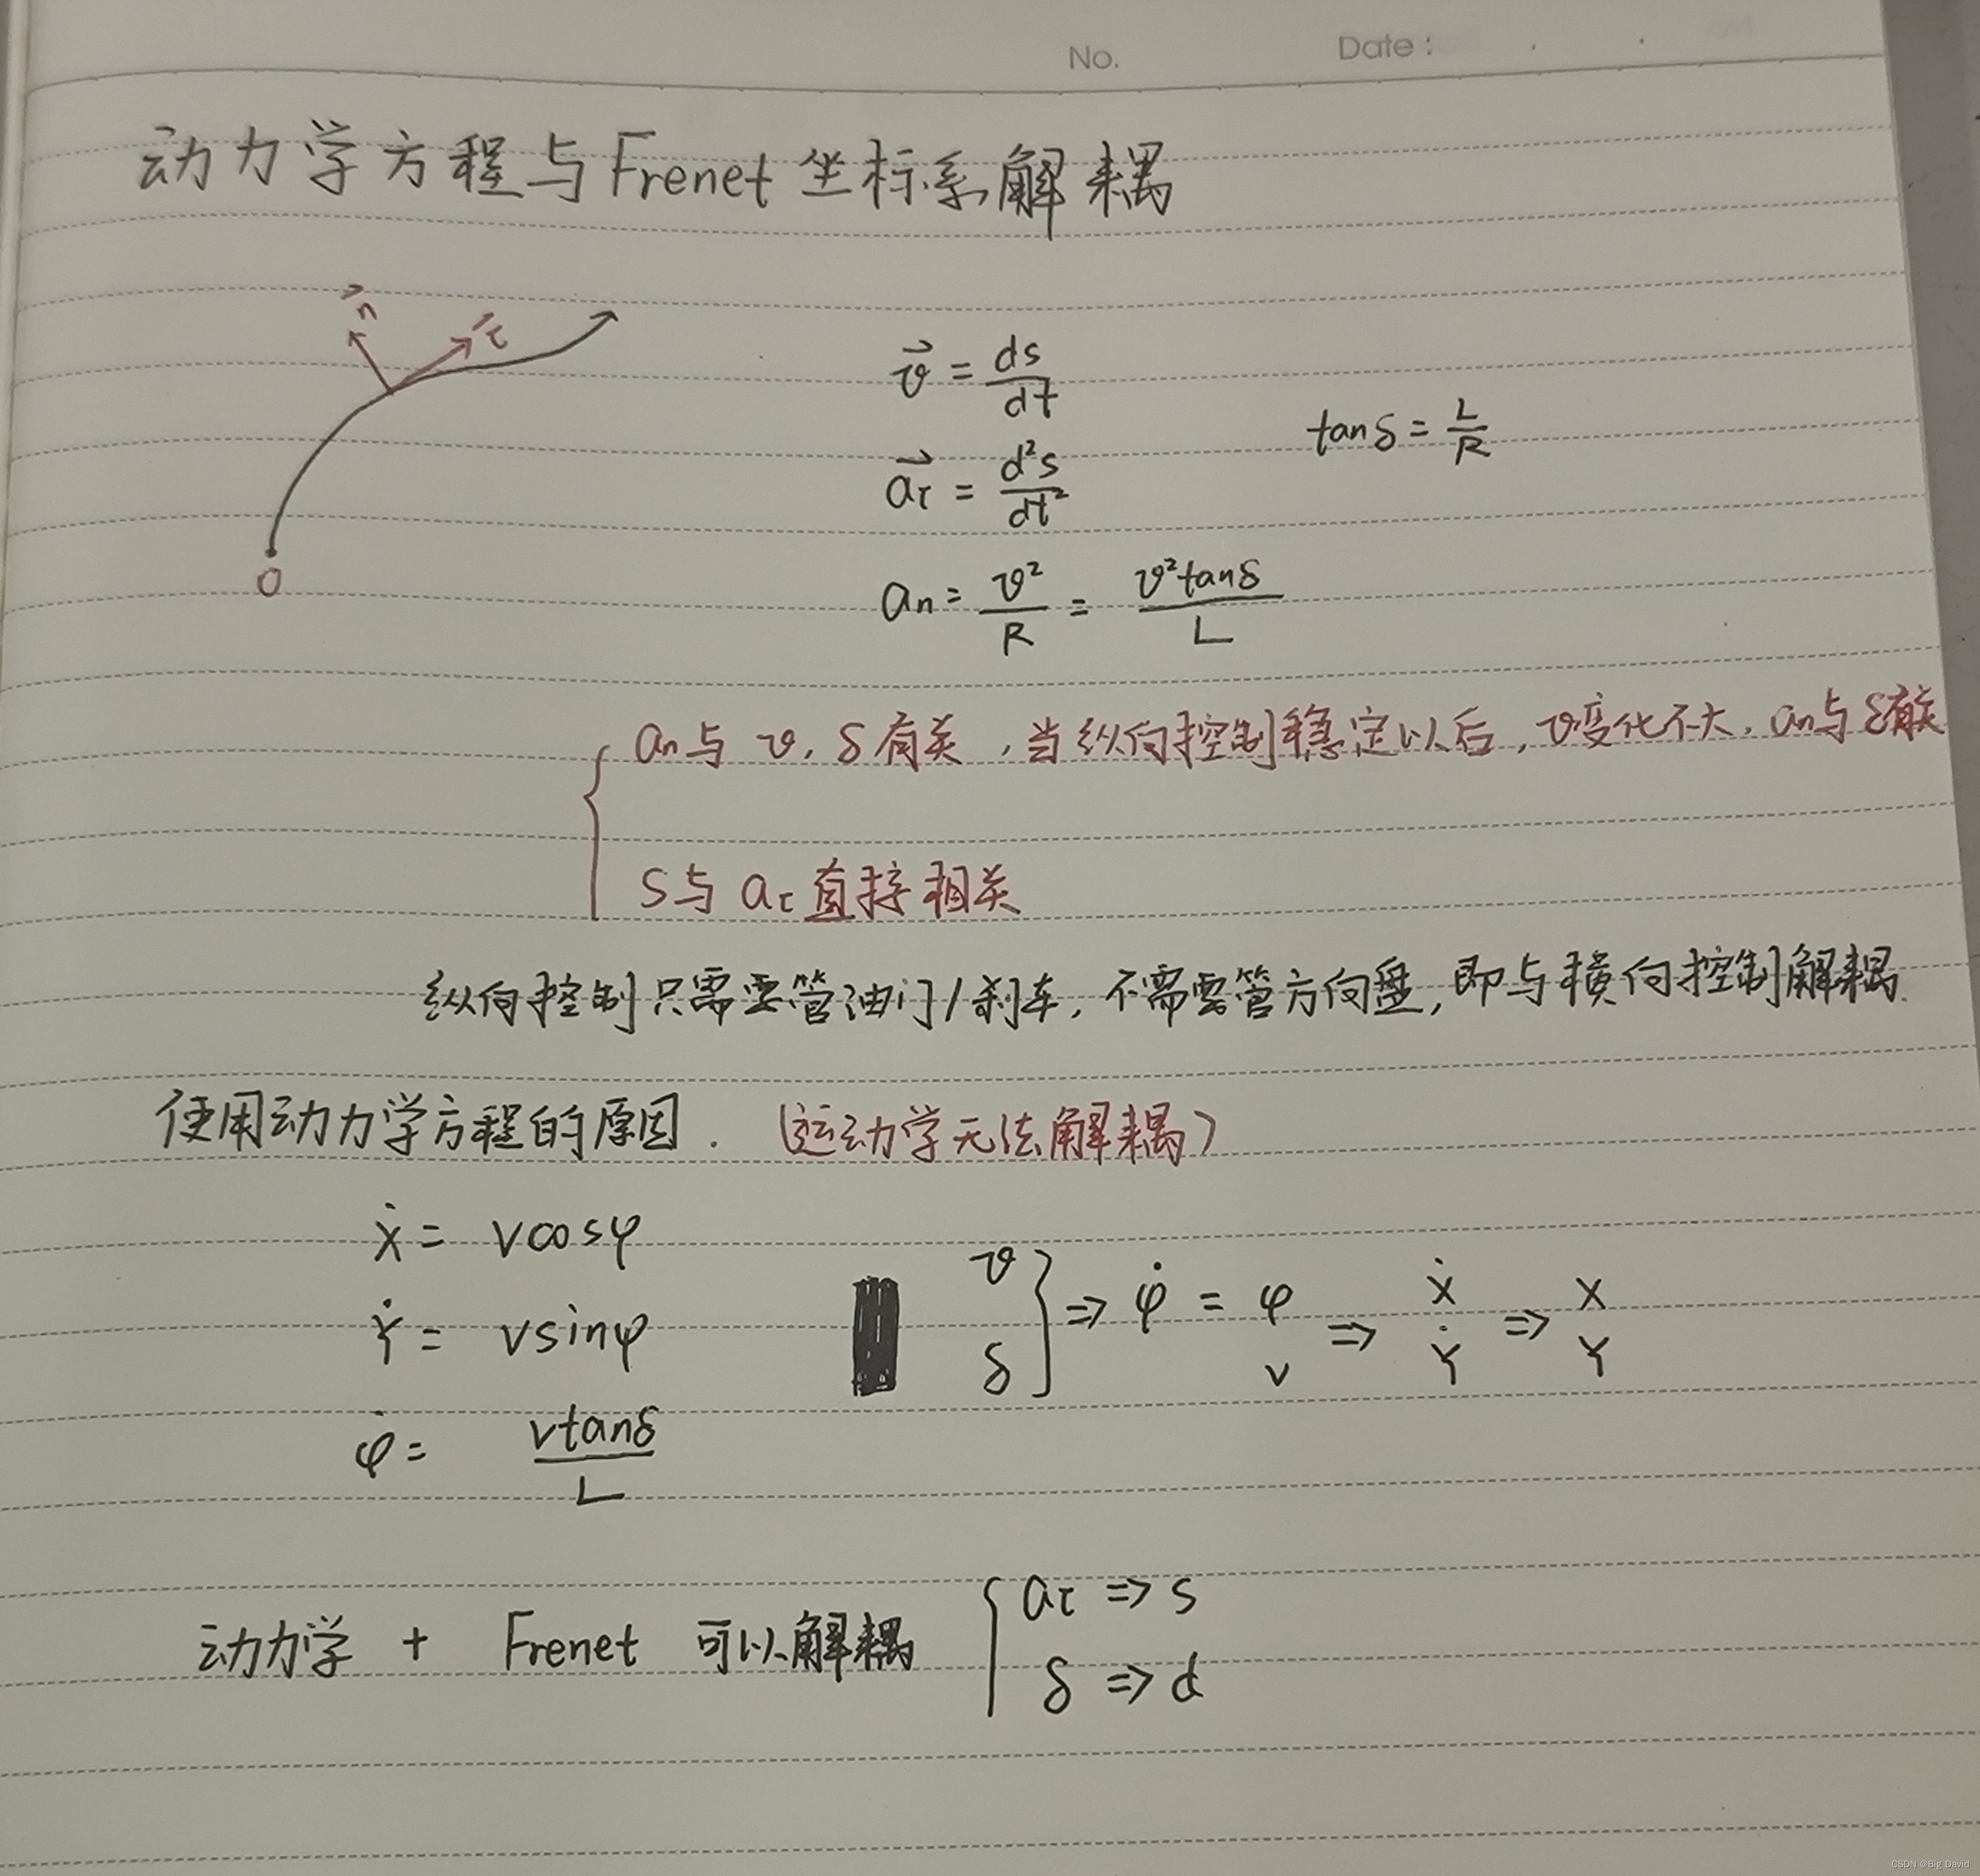 No. Date:
动力学方程与Frenet坐标系解耦
n⃗ τ⃗
O
v⃗ = ds/dt
tanδ = L/R
a⃗τ = d²s/dt²
an = v²/R = v²tanδ/L
an与 v, δ有关, 当纵向控制稳定以后, v变化不大, an与δ有关
S与 aτ 直接相关
纵向控制只需要管油门/刹车, 不需要管方向盘, 即与横向控制解耦.
使用动力学方程的原因. (运动学无法解耦)
Ẋ = vcosφ
Ẏ = vsinφ
φ̇ = vtanδ/L
v δ } => φ̇ = φ v => Ẋ Ẏ => X Y
动力学 + Frenet 可以解耦 { aτ => s
δ => d
CSDN @Big David